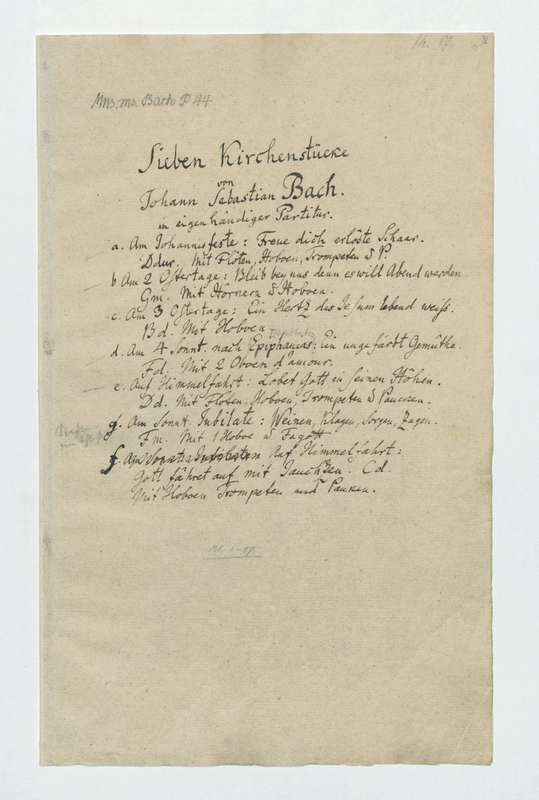 14. 17.
Mus. ms. Bach P 44
Sieben Kirchenstücke
von
Johann Sebastian Bach.
in eigenhändiger Partitur.
a. Am Johannisfeste: Freue dich erlöste Schaar.
D dur. Mit Flöten, Hoboen, Trompeten u P.
b Am 2 Ostertage: Bleib bey uns denn es will Abend werden
Gm. Mit Hörnern u Hoboen.
c. Am 3 Ostertage: Ein Hertz das Jesum lebend weiss.
B d. Mit Hoboen
d. Am 4 Sonnt. nach Epiphanias: Ein ungefärbt Gemüthe.
F d. Mit 2 Oboen d'amour.
e. Auf Himmelfahrt: Lobet Gott in seinen Höhen.
D d. Mit Flöten, Hoboen, Trompeten u Paucken.
g. Am Sonnt. Jubilate: Weinen, Klagen, Sorgen, Zagen.
F m. Mit 1 Hoboe u Fagott
f. Auf Himmelfahrt:
Gott fähret auf mit Jauchzen. C d.
Mit Hoboen Trompeten und Pauken.